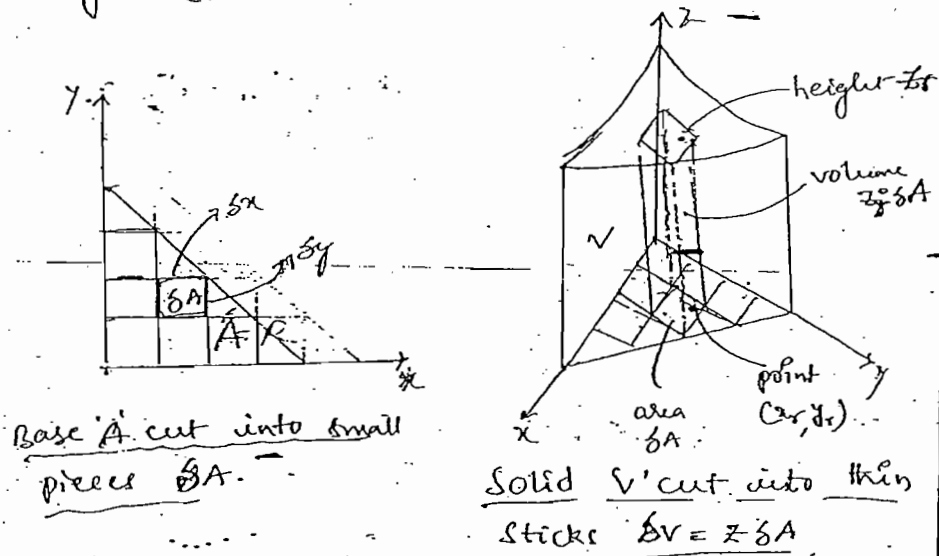 y
δx
δy
δA
A
x
Base 'A' cut into small
pieces δA.
z
height z_r
volume
z_r δA
V
point
(x_r, y_r)
area
δA
x
y
Solid 'V' cut into thin
Sticks δV = z δA